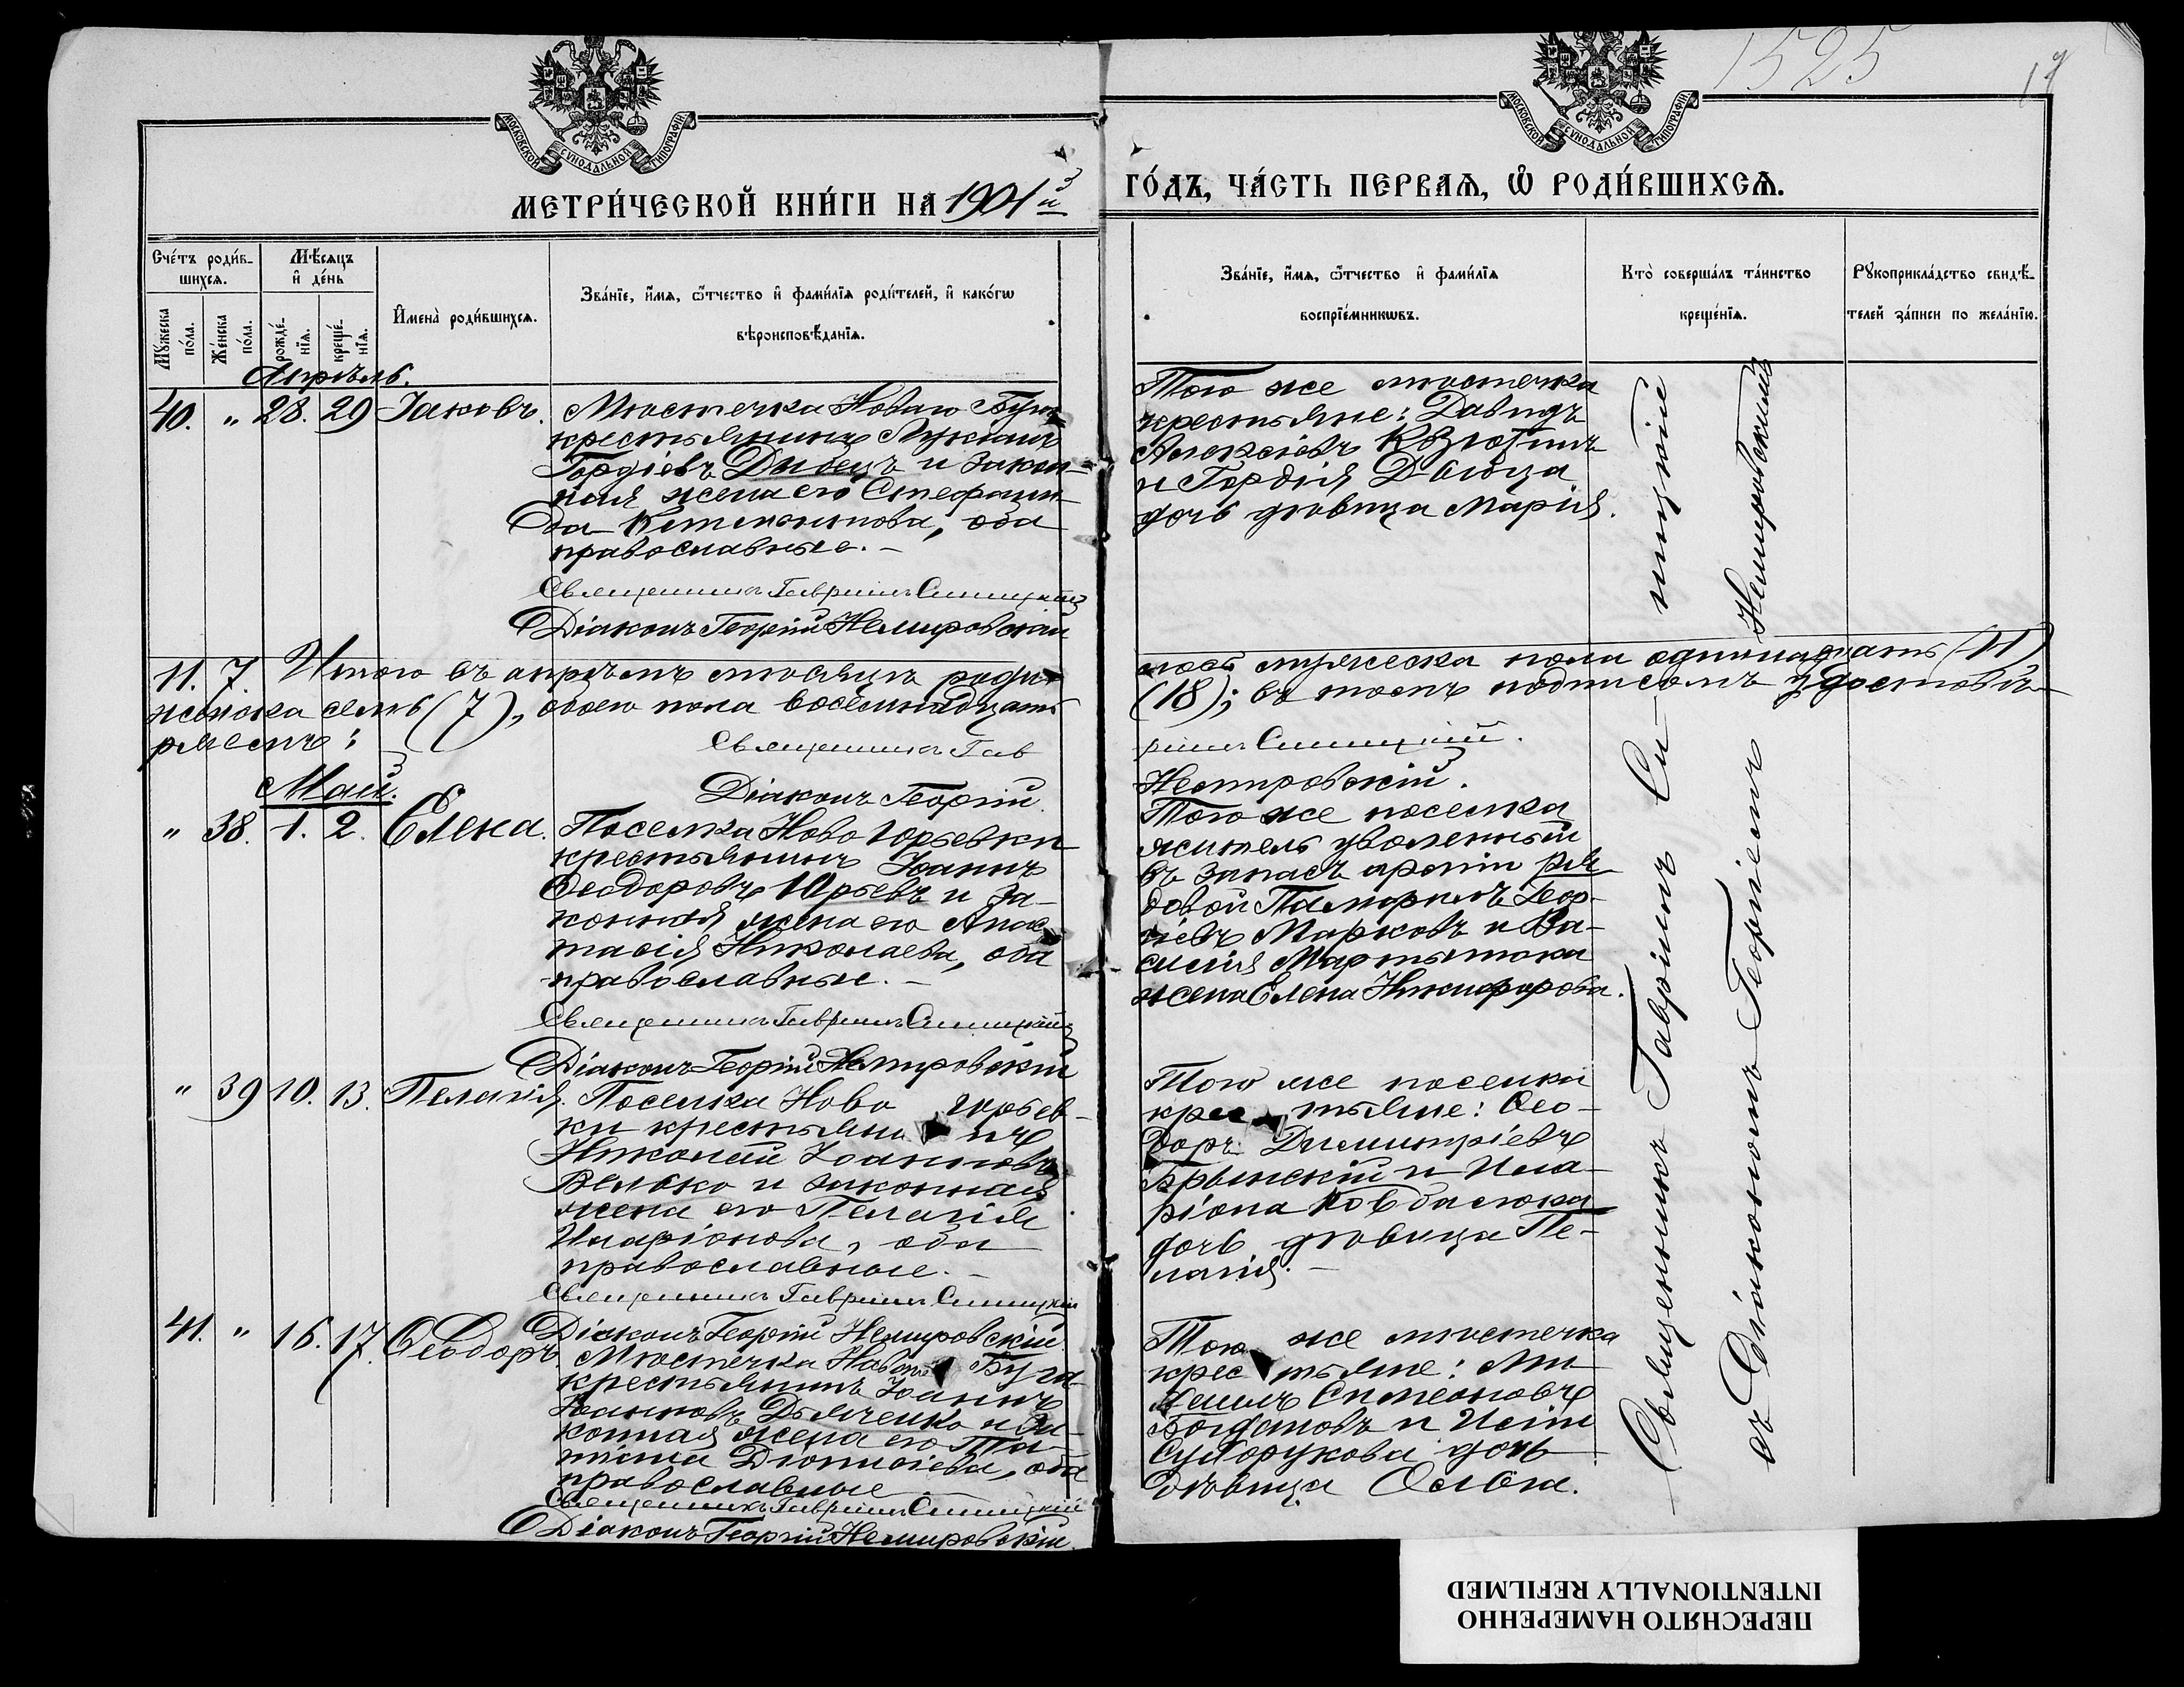 1525
19
МОСКОВСКОЙ СѴНОДАЛЬНОЙ ТИПОГРАФІИ
МОСКОВСКОЙ СѴНОДАЛЬНОЙ ТИПОГРАФІИ
МЕТРИ́ЧЕСКОЙ КНИ́ГИ НА 1901й
ГО́ДЪ, ЧА́СТЬ ПЕРВАѦ, Ѡ РОДИ́ВШИХСѦ.
Сче́тъ роди́в-
шихсѧ.
Мꙋжеска по́ла.
Же́нска по́ла.
Мѣ́сѧцъ
и҆ де́нь
рожде́-
нїѧ.
креще́-
нїѧ.
И҆мена̀ роди́вшихсѧ.
Зва́нїе, и҆́мѧ, ѻ҆́тчество и҆ фами́лїѧ роди́телей, и҆ како́гѡ
вѣроисповѣ́данїѧ.
Зва́нїе, и҆́мѧ, ѻ҆́тчество и҆ фами́лїѧ
воспрїе́мникѡвъ.
Кто̀ соверша́лъ та́инство
креще́нїѧ.
Рꙋкоприкла́дство свидѣ́-
телей за́писи по жела́нїю.
Апрѣль.
40. " 28. 29 Іаковъ.
Мѣстечка Новаго Буга
крестьянинъ Лукіанъ
Гордіевъ Дибецъ и закон-
ная жена его Стефани-
да Климентова, оба
православные.-
Священникъ Гавріилъ Синицкій
Діаконъ Георгій Немировскій
Того же мѣстечка
крестьяне: Давидъ
Алексіевъ
и Гордія Дибца
дочь дѣвица Марія.
11. 7. Итого въ апрѣлѣ мѣсяцѣ роди-
лось мужеска пола одинадцать (11)
женска семь (7), обоего пола восемнадцать
(18); въ томъ подписомъ удостовѣ-
ряемъ:
Священникъ Гав
ріилъ Синицкій.
Діаконъ Георгій
Немировскій.
Май.
" 38. 1. 2. Елена.
Поселка Ново Юрьевки
крестьянинъ Іоаннъ
Ѳеодоровъ Юрьевъ и за-
конная жена его Анас-
тасія Николаева, оба
православные.-
Священникъ Гавріилъ Синицкій
Діаконъ Георгій Немировскій
Того же поселка
житель уволенный
въ запасъ арміи ря-
довой Памфилъ Геор-
гіевъ Марковъ и Ва-
силія Мартынюка
жена Елена Никифорова.
" 39 10. 13. Пелагія.
Поселка Ново Юрьев-
ки крестьянинъ
Николай Іоанновъ
Велько и законная
жена его Пелагія
Иларіонова, оба
православные.-
Священникъ Гавріилъ Синицкій
Діаконъ Георгій Немировскій
Того же поселка
крестьяне: Ѳео-
доръ Димитріевъ
Брынскій и Ила-
ріона Ковбасюка
дочь дѣвица Пе-
лагія.-
41. " 16. 17. Ѳеодоръ
Мѣстечка Новаго Буга
крестьянинъ Іоаннъ
Іоанновъ Дьяченко и за-
конная жена его Та-
тіана Діонисіева, оба
православные
Священникъ Гавріилъ Синицкій
Діаконъ Георгій Немировскій.
Того же мѣстечка
крестьяне: Ми-
хаилъ Симеоновъ
Богдановъ и Исіи
Сухорукова дочь
дѣвица Ольга.
Священникъ Гавріилъ Си-ницкій
съ Діакономъ Георгіемъ Немировскимъ
ПЕРЕСНЯТО НАМЕРЕННО
INTENTIONALLY REFILMED